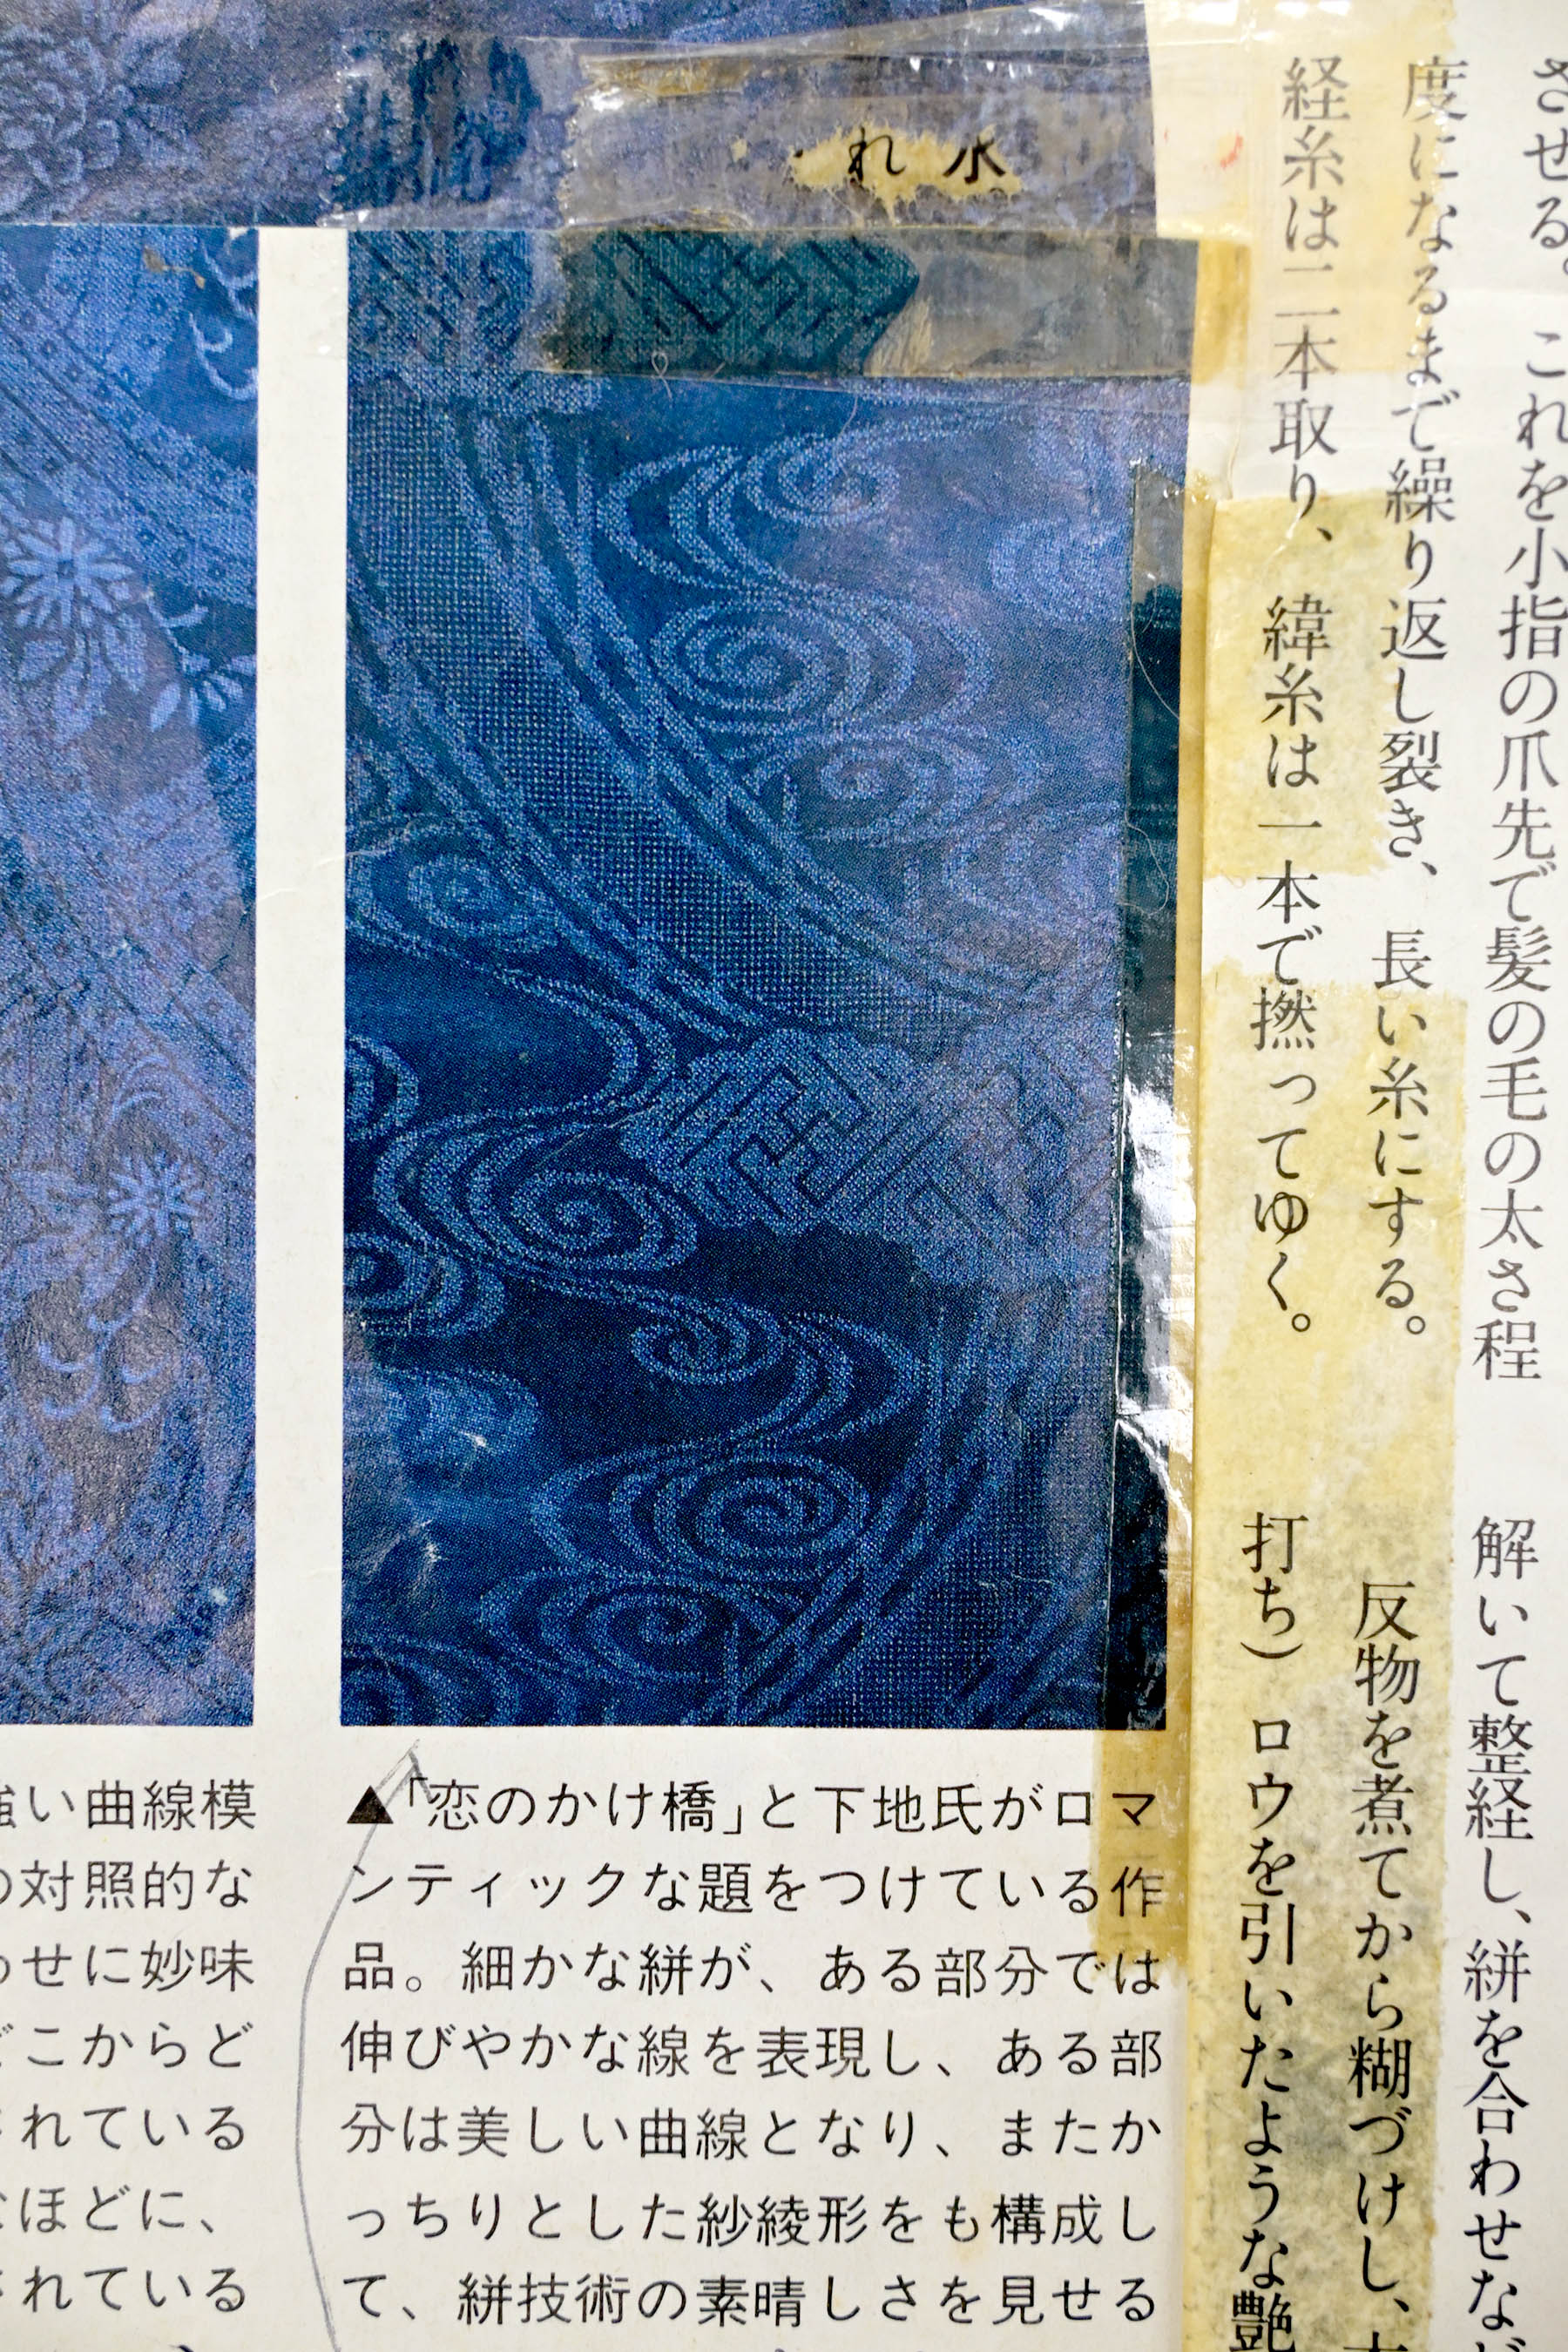 させる。これを小指の爪先で髪の毛の太さ程
度になるまで繰り返し裂き、長い糸にする。
経糸は二本取り、緯糸は一本で撚ってゆく。
解いて整経し、絣を合わせなど
反物を煮てから糊づけし、
打ち）ロウを引いたような艶
れ 水
▲「恋のかけ橋」と下地氏がロマ
ンティックな題をつけている作
品。細かな絣が、ある部分では
伸びやかな線を表現し、ある部
分は美しい曲線となり、またか
っちりとした紗綾形をも構成し
て、絣技術の素晴しさを見せる
強い曲線模
の対照的な
わせに妙味
どこからど
されている
なほどに、
されている